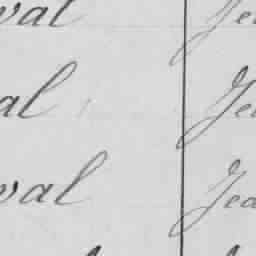 val Je
al Je
val Jea